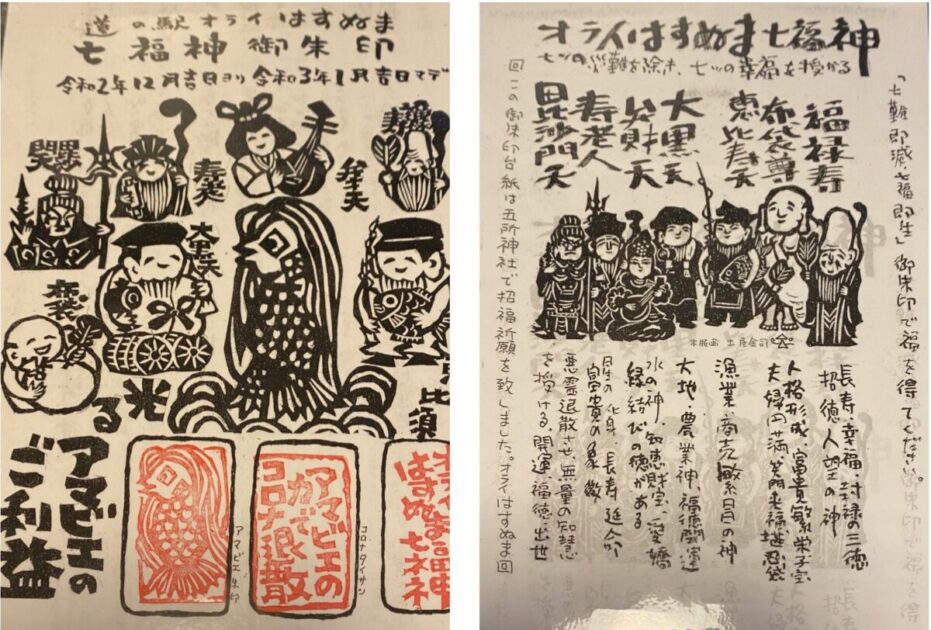 道の駅オライはすぬま
七福神御朱印
令和2年12月吉日ヨリ令和3年1月吉日マデ
毘沙門天
寿老人
弁天
大黒天
布袋
恵比須
光る
アマビエの
ご利益
アマビエ朱印
アマビエの
力で
コロナ退散
コロナタイサン
七福神
オライはすぬま七福神
七ツの災難を除き、七ツの幸福を授かる
「七難即滅、七福即生」御朱印で福を得てください。
福禄寿
布袋尊
恵比寿天
大黒天
弁財天
寿老人
毘沙門天
回この御朱印台紙は五所神社で招福祈願を致しました。オライはすぬま回
木版画 土屋金司
長寿・幸福・封禄の三徳
招徳人望の神
人格形成、富貴繁栄子宝
夫婦円満、笑門来福、堪忍袋
漁業・商売繁昌の神
大地・農業神、福徳開運
水の神、知恵財宝、愛嬌
縁結びの徳がある
星の化身、長寿延命
富貴の象徴
悪霊退散させ、無量の知慧
を授ける、開運、福徳出世